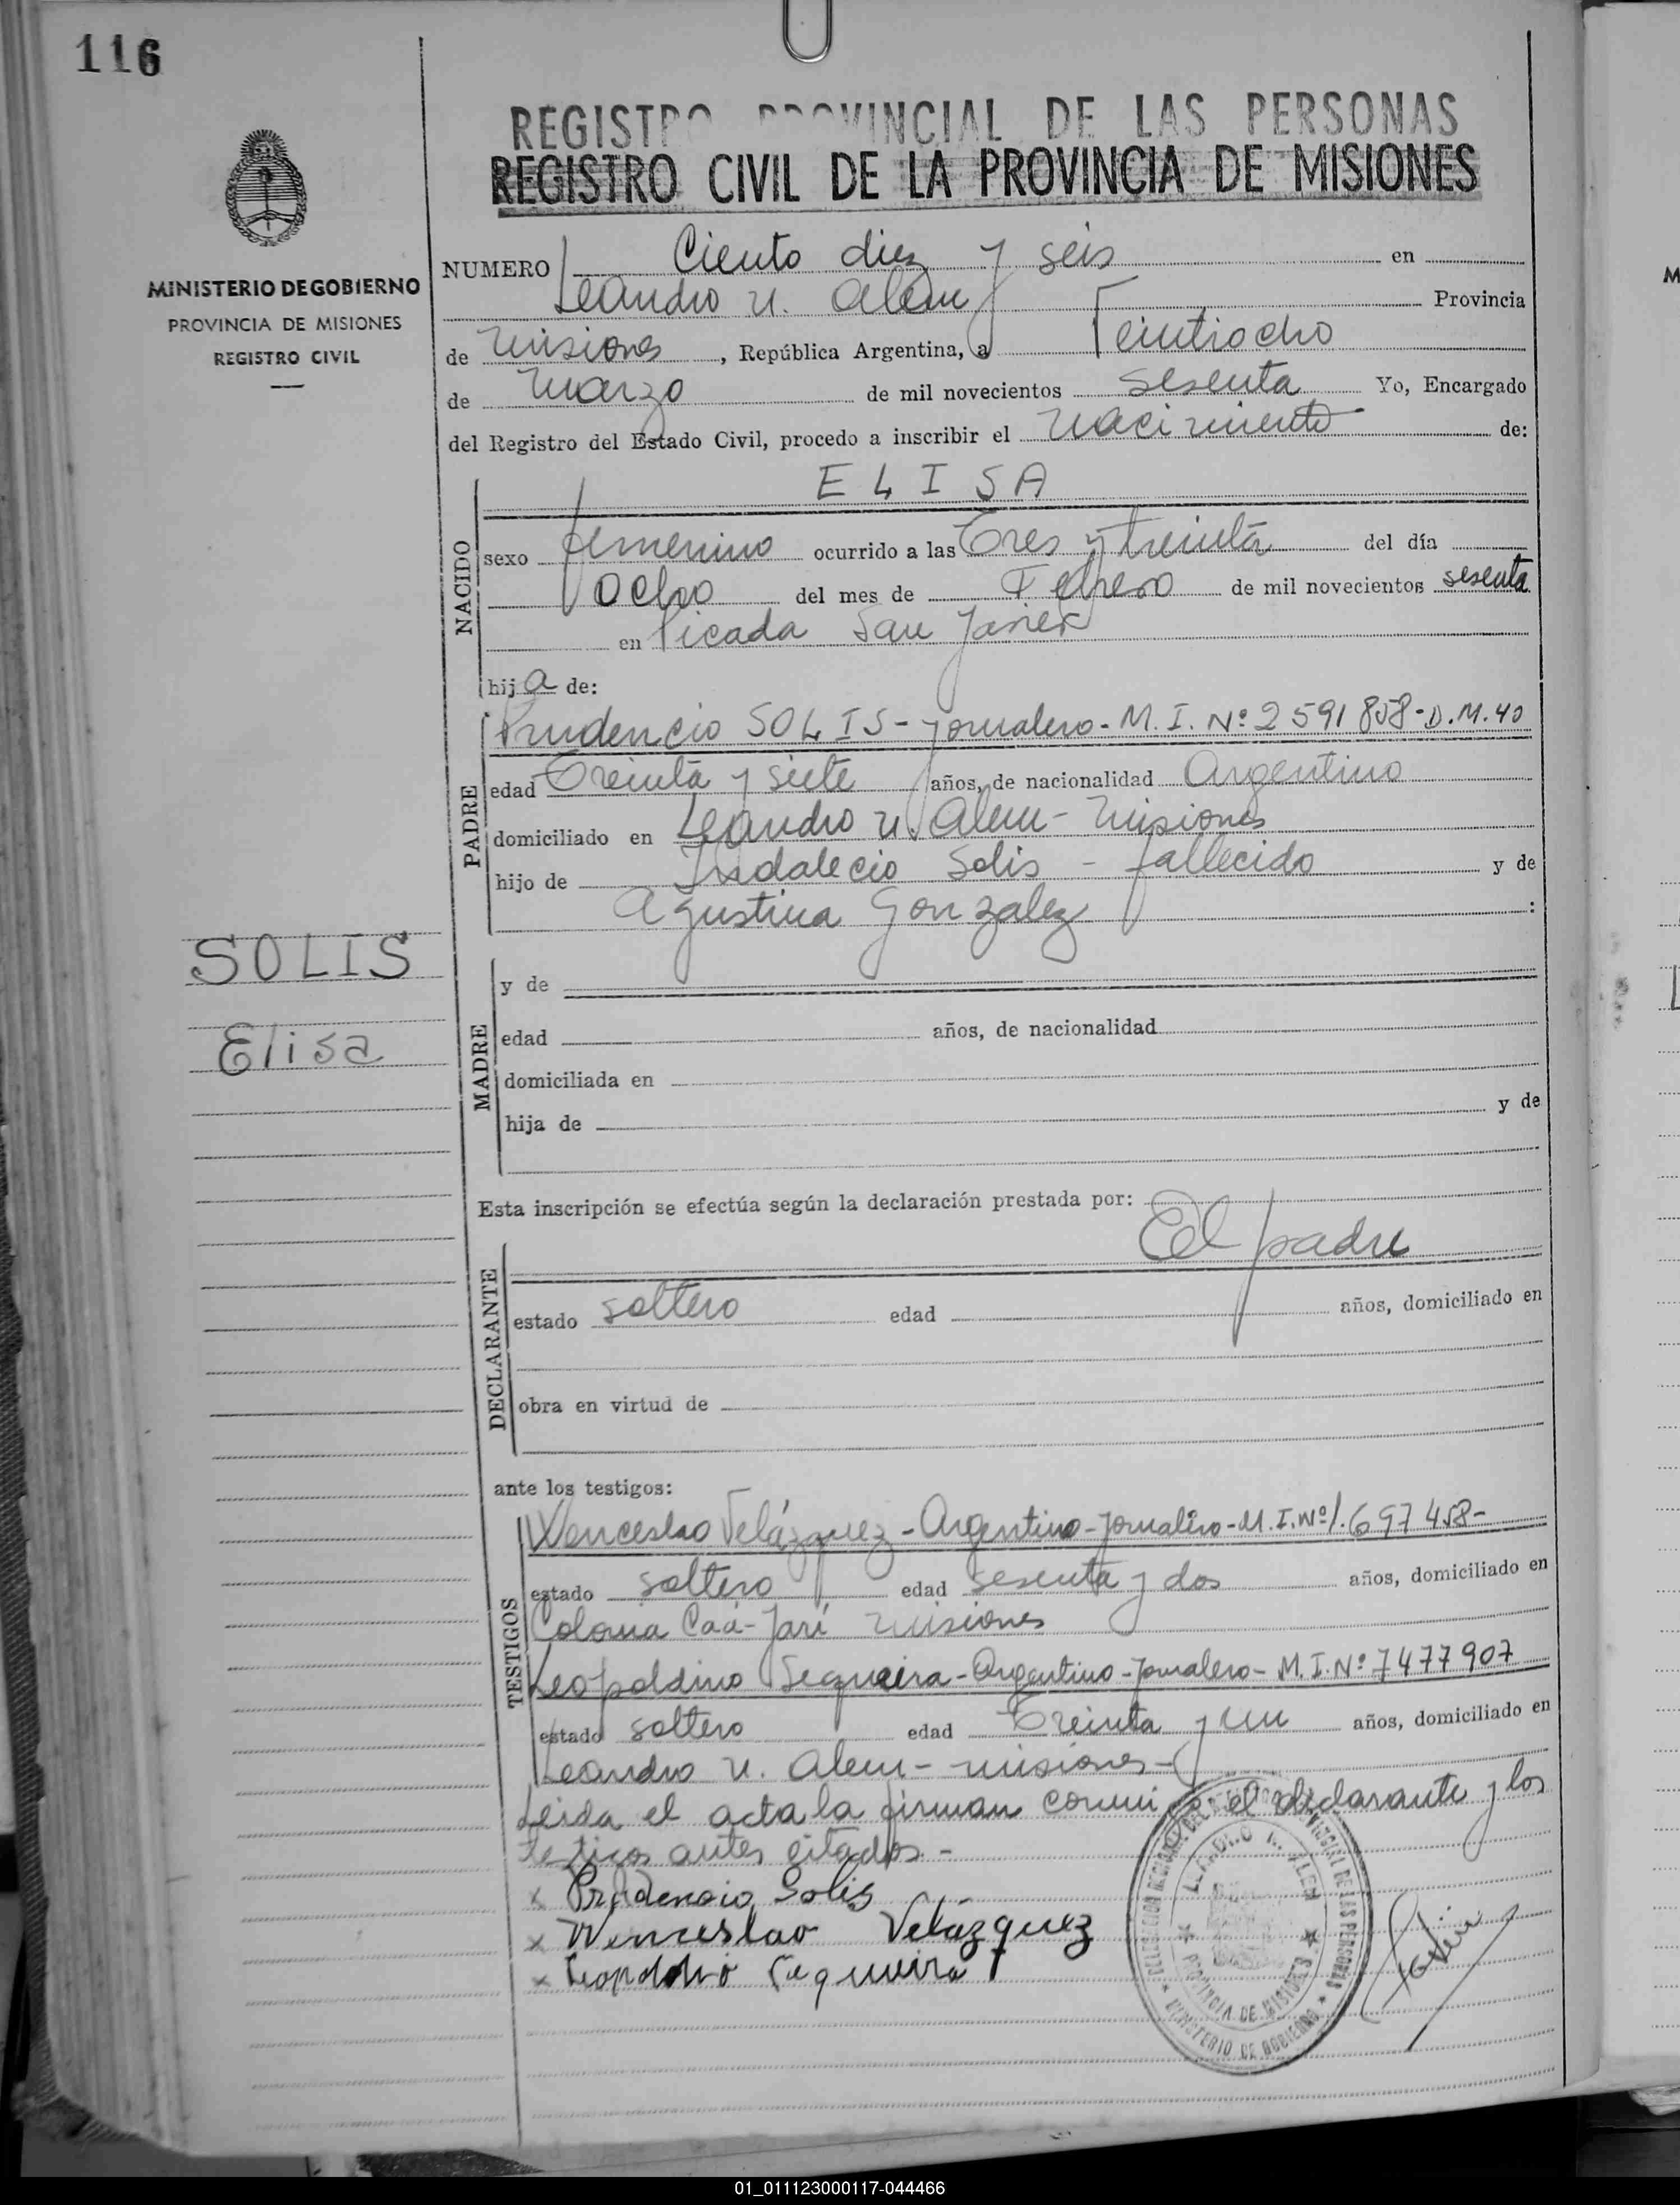 116
REGISTRO PROVINCIAL DE LAS PERSONAS
REGISTRO CIVIL DE LA PROVINCIA DE MISIONES
MINISTERIO DE GOBIERNO
PROVINCIA DE MISIONES
REGISTRO CIVIL
NUMERO Ciento diez y seis en
Leandro N. Alem Provincia
de Misiones, República Argentina, a Veintiocho
de Marzo de mil novecientos sesenta Yo, Encargado
del Registro del Estado Civil, procedo a inscribir el nacimiento de:
NACIDO
ELISA
sexo femenino ocurrido a las Tres y treinta del día
Ocho del mes de Febrero de mil novecientos sesenta
en Picada San Javier
hija de:
PADRE
Prudencio SOLIS - jornalero - M. I. Nº 2591858 - D.M. 40
edad Treinta y siete años, de nacionalidad Argentino
domiciliado en Leandro N. Alem - Misiones
hijo de Indalecio Solis - fallecido y de
Agustina Gonzalez :
SOLIS
Elisa
MADRE
y de
edad años, de nacionalidad
domiciliada en
hija de y de
Esta inscripción se efectúa según la declaración prestada por:
El padre
DECLARANTE
estado soltero edad años, domiciliado en
obra en virtud de
ante los testigos:
TESTIGOS
Wenceslao Velázquez - Argentino - Jornalero - M. I. Nº 1.697458 -
estado soltero edad sesenta y dos años, domiciliado en
Colonia Caá-Yarí Misiones
Leopoldino Sequeira - Argentino - Jornalero - M. I. Nº 7477907
estado soltero edad Treinta y un años, domiciliado en
Leandro N. Alem - Misiones -
Leida el acta la firman conmigo el declarante y los
testigos antes citados. -
x Prudencio Solis
x Wenceslao Velázquez
x Leopoldino Sequeira
LEANDRO N. ALEM
PROVINCIA DE MISIONES
MINISTERIO DE GOBIERNO
01_011123000117-044466